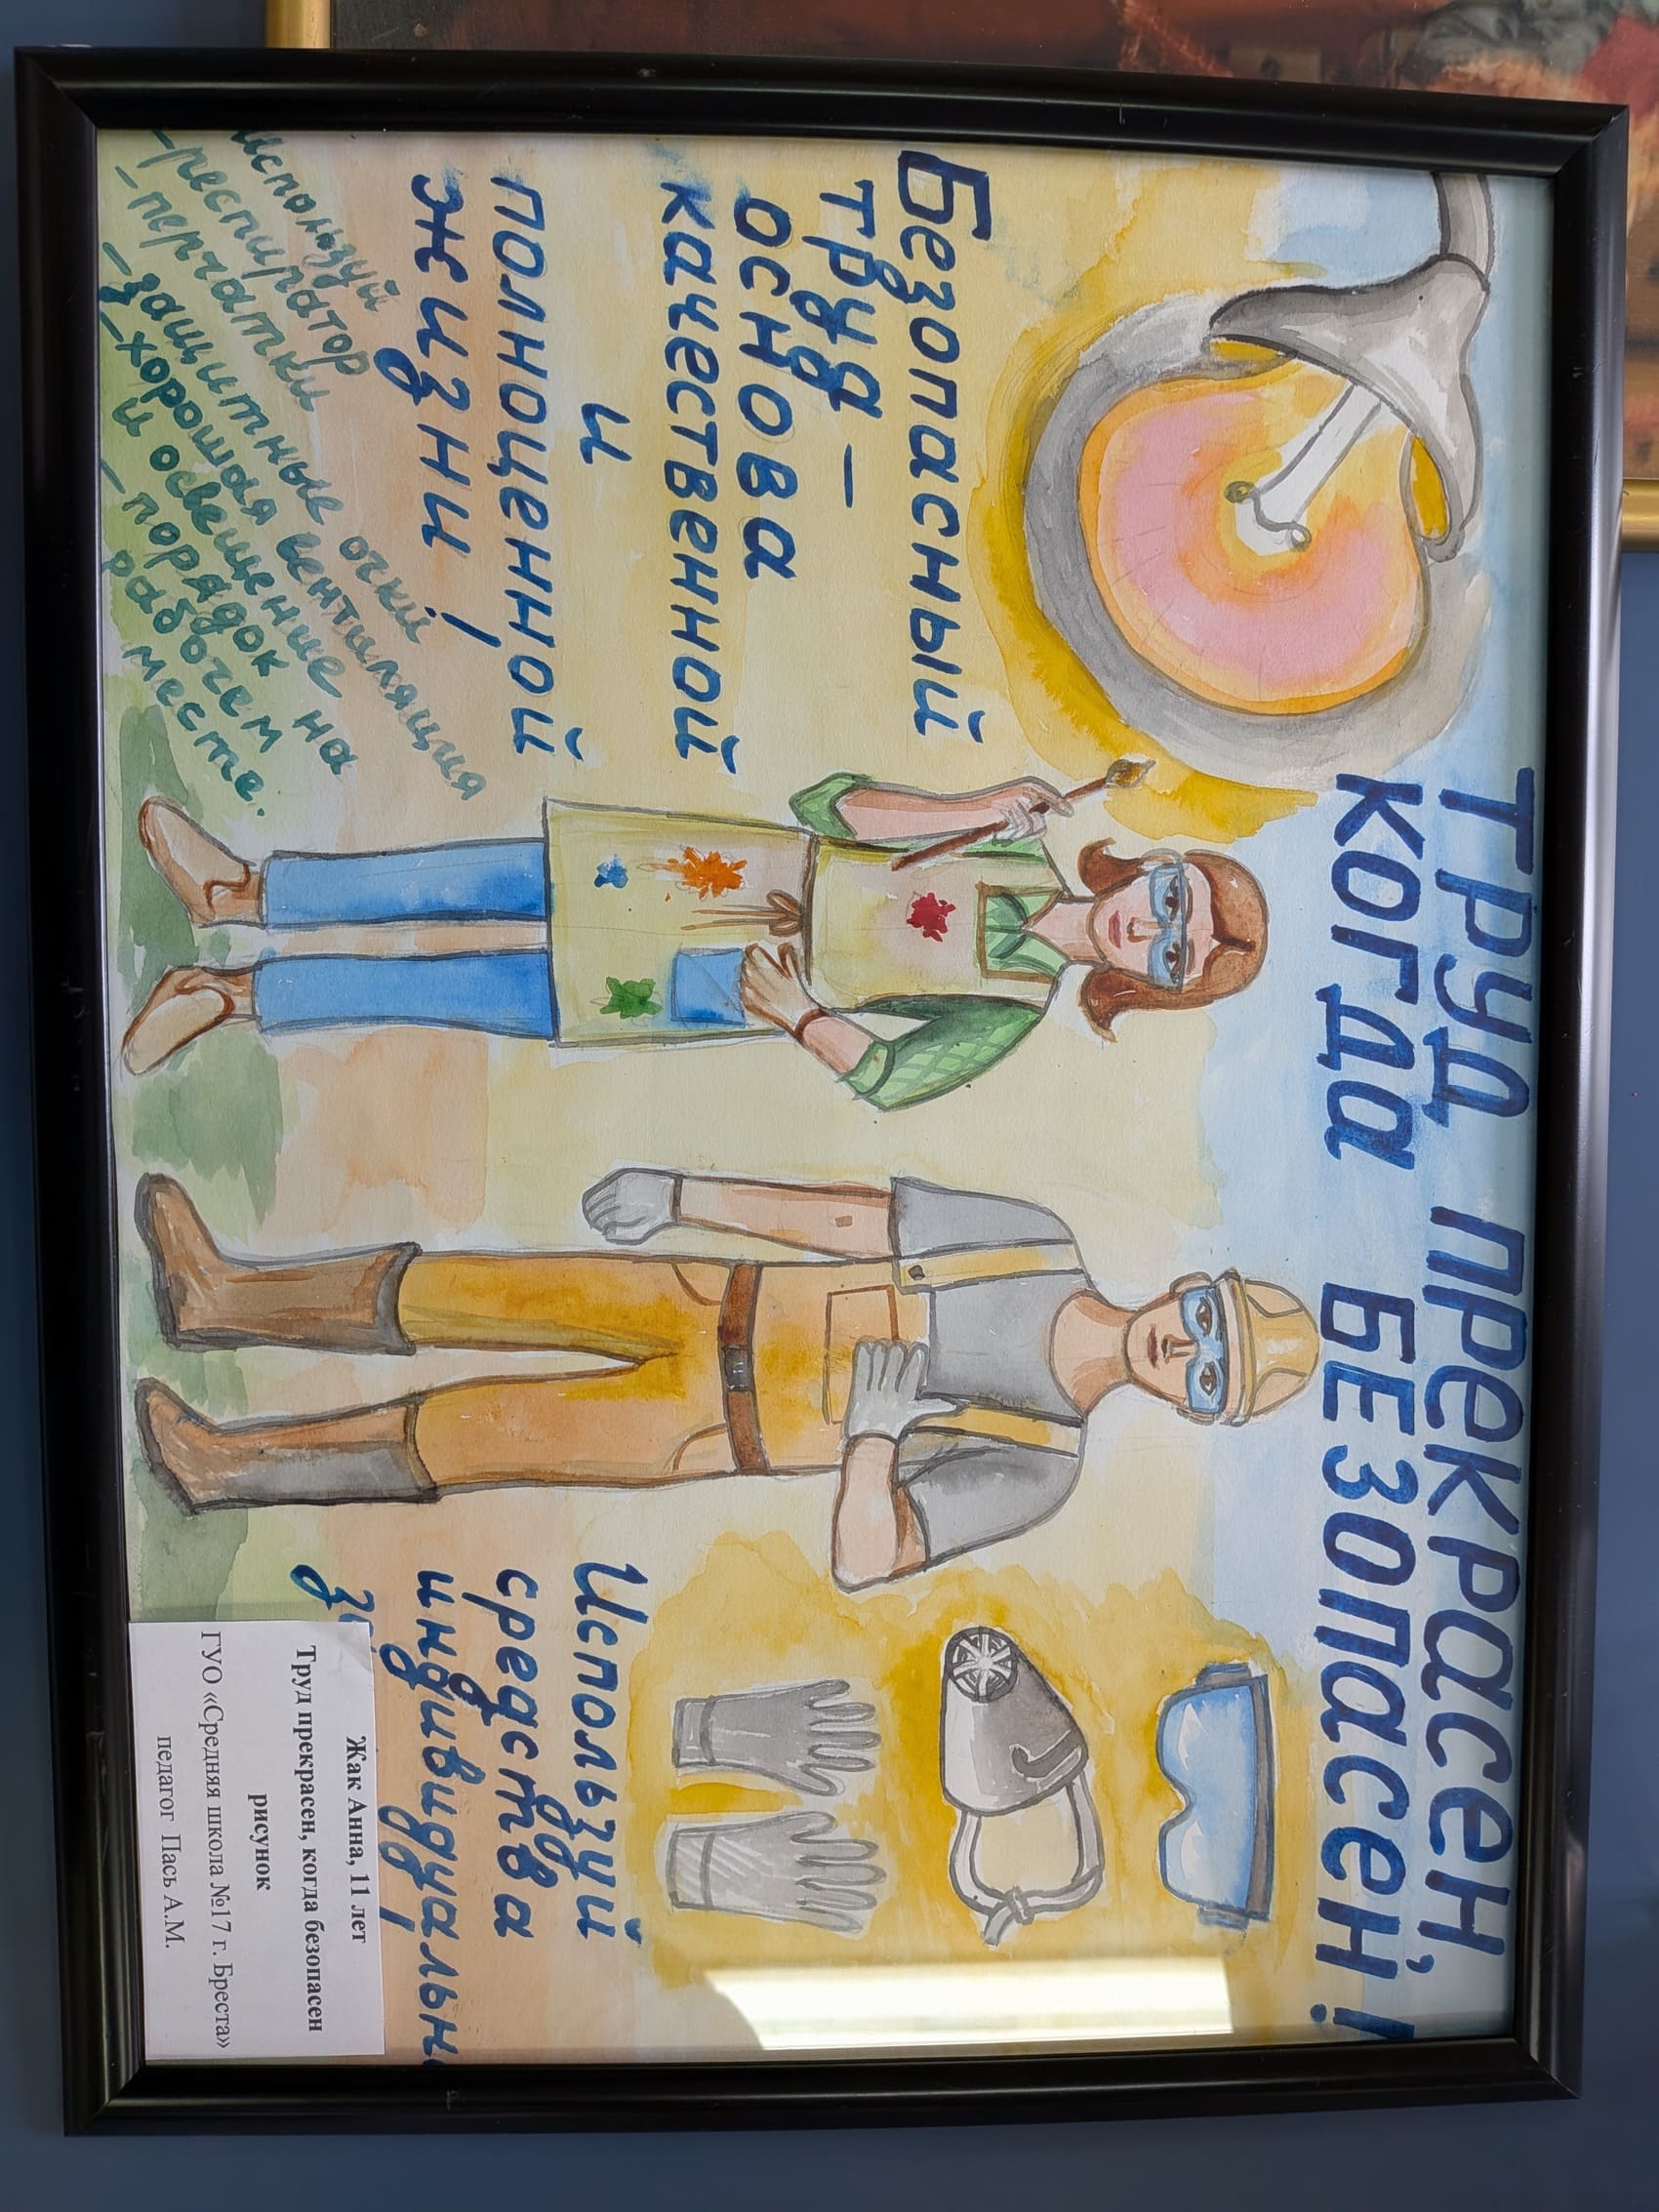 Труд прекрасен,
когда БЕЗОПАСЕН!
Безопасный
труд -
основа
качественной
и
полноценной
жизни!
используй
-респиратор
-перчатки
-защитные очки
-хорошая вентиляция
и освещение
-порядок на
рабочем
месте.
Используй
средства
индивидуальн
Жак Анна, 11 лет
Труд прекрасен, когда безопасен
рисунок
ГУО «Средняя школа №17 г. Бреста»
педагог Пась А.М.